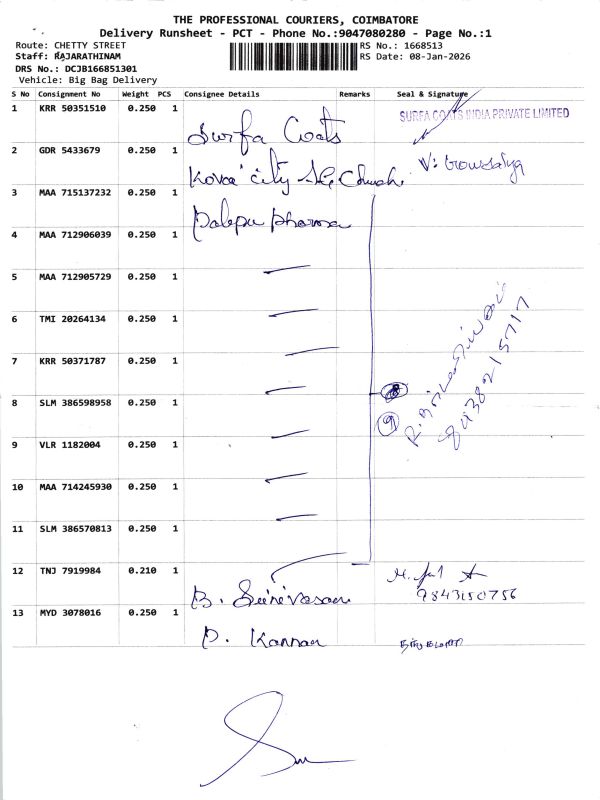 THE PROFESSIONAL COURIERS, COIMBATORE
Delivery Runsheet - PCT - Phone No.:9047080280 - Page No.:1
Route: CHETTY STREET
RS No.: 1668513
Staff: RAJARATHINAM
RS Date: 08-Jan-2026
DRS No.: DCJB166851301
Vehicle: Big Bag Delivery
S No Consignment No Weight PCS Consignee Details Remarks Seal & Signature
1 KRR 50351510 0.250 1 Surfa Coats SURFA COATS INDIA PRIVATE LIMITED
2 GDR 5433679 0.250 1 Kovai city
3 MAA 715137232 0.250 1 pharma
4 MAA 712906039 0.250 1
5 MAA 712905729 0.250 1
6 TMI 20264134 0.250 1
7 KRR 50371787 0.250 1
8 SLM 386598958 0.250 1
9 VLR 1182004 0.250 1 9
10 MAA 714245930 0.250 1
11 SLM 386570813 0.250 1
8438215717
12 TNJ 7919984 0.210 1 B. Srinivasan 9843150756
13 MYD 3078016 0.250 1 P. Kannan